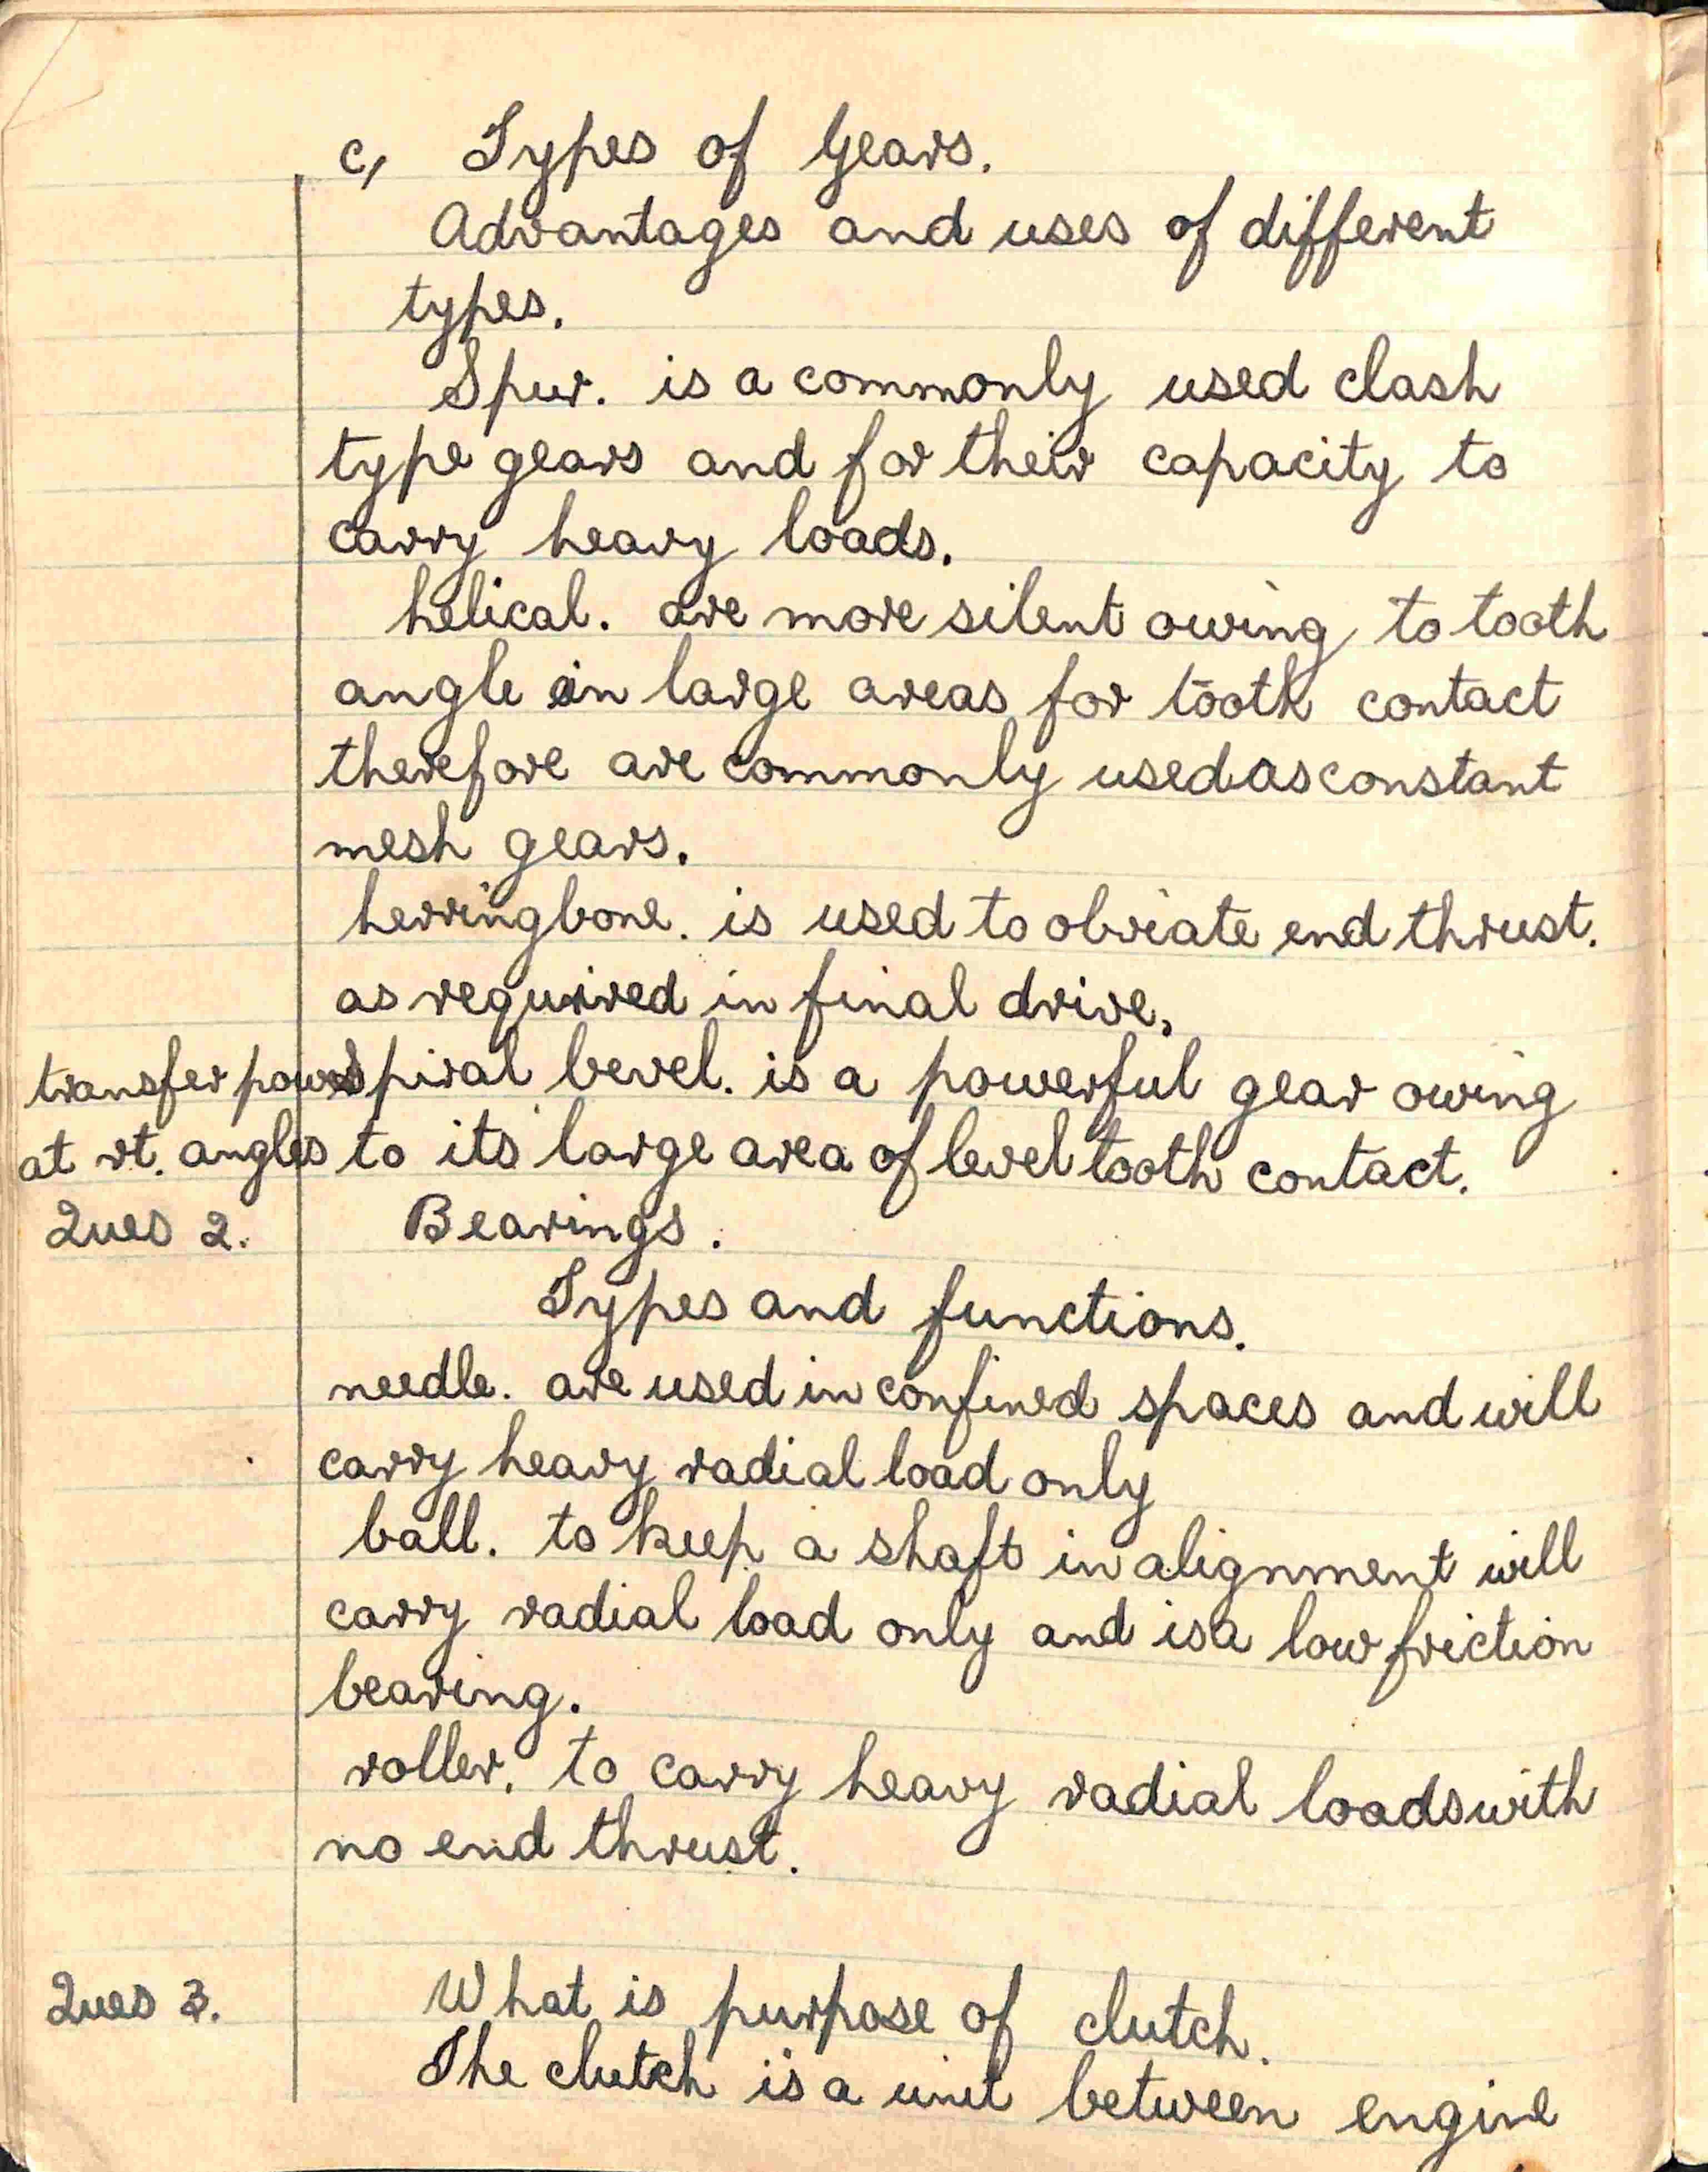 c, Types of Gears.
Advantages and uses of different
types.
Spur. is a commonly used clash
type gears and for their capacity to
carry heavy loads.
helical. are more silent owing to tooth
angle in large areas for tooth contact
therefore are commonly used as constant
mesh gears.
herringbone. is used to obviate end thrust.
as required in final drive.
transfer power Spiral bevel. is a powerful gear owing
at rt. angles to its large area of level tooth contact.
Ques 2. Bearings.
Types and functions.
needle. are used in confined spaces and will
carry heavy radial load only
ball. to keep a shaft in alignment will
carry radial load only and is a low friction
bearing.
roller. to carry heavy radial loads with
no end thrust.
Ques 3. What is purpose of clutch.
The clutch is a unit between engine